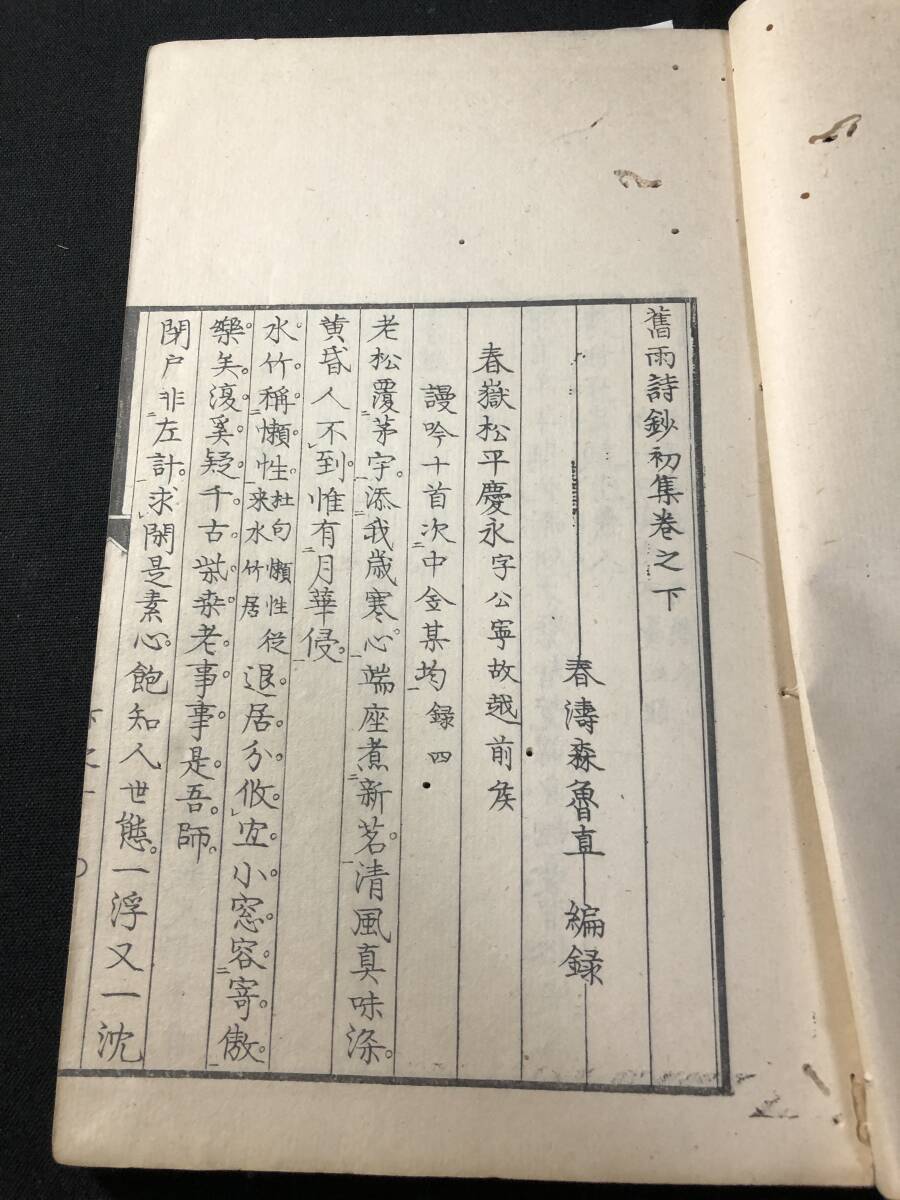 舊雨詩鈔初集卷之下
春濤森魯直 編錄
春嶽松平慶永字公寧故越前侯
謾吟十首次中金某均錄四
老松覆茅宇。添我歲寒心。端座煮新茗。清風真味深。
黃昏人不到。惟有月華侵。
水竹稱懶性。杜句懶性從來水竹居退居分攸宜。小窓容寄傲。
樂矣復奚疑。千古柴桑老。事事是吾師。
閉戶非左計。求閑是素心。飽知人世態。一浮又一沈
下之一